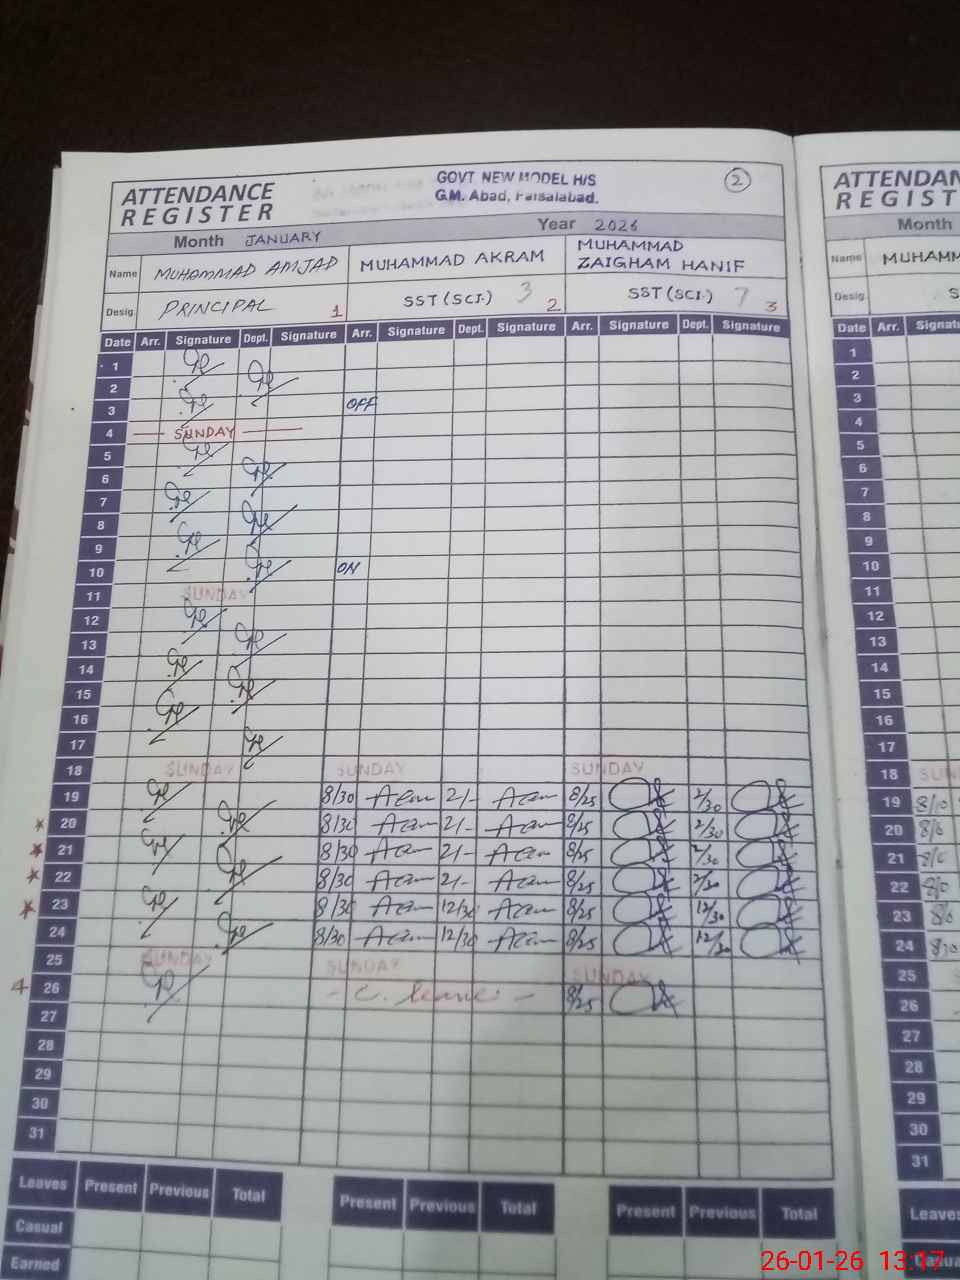 ATTENDANCE
REGISTER
GOVT NEW MODEL H/S
G.M. Abad, Faisalabad.
2
Month JANUARY Year 2026
Name MUHAMMAD AMJAD MUHAMMAD AKRAM MUHAMMAD ZAIGHAM HANIF
Desig. PRINCIPAL 1 SST (SCI.) 3 2 SST (SCI.) 7 3
Date Arr. Signature Dept. Signature Arr. Signature Dept. Signature Arr. Signature Dept. Signature
1
2
3 OFF
4 SUNDAY
5
6
7
8
9
10 ON
11 SUNDAY
12
13
14
15
16
17
18 SUNDAY SUNDAY SUNDAY
19 8/30 2/- 8/25 2/30
20 8/30 2/- 8/25 2/30
21 8/30 2/- 8/25 2/30
22 8/30 2/- 8/25 2/30
23 8/30 12/30 8/25 12/30
24 8/30 12/30 8/25 12/30
25 SUNDAY SUNDAY SUNDAY
26 - C. leave - 8/25
27
28
29
30
31
Leaves Present Previous Total Present Previous Total Present Previous Total
Casual
Earned
ATTENDAN
REGIST
Month
Name MUHAMM
Desig. S
Date Arr. Signat
1
2
3
4
5
6
7
8
9
10
11
12
13
14
15
16
17
18 SUN
19 8/10
20
21
22
23
24 8/30
25
26
27
28
29
30
31
Leaves
Casua
26-01-26 13:17